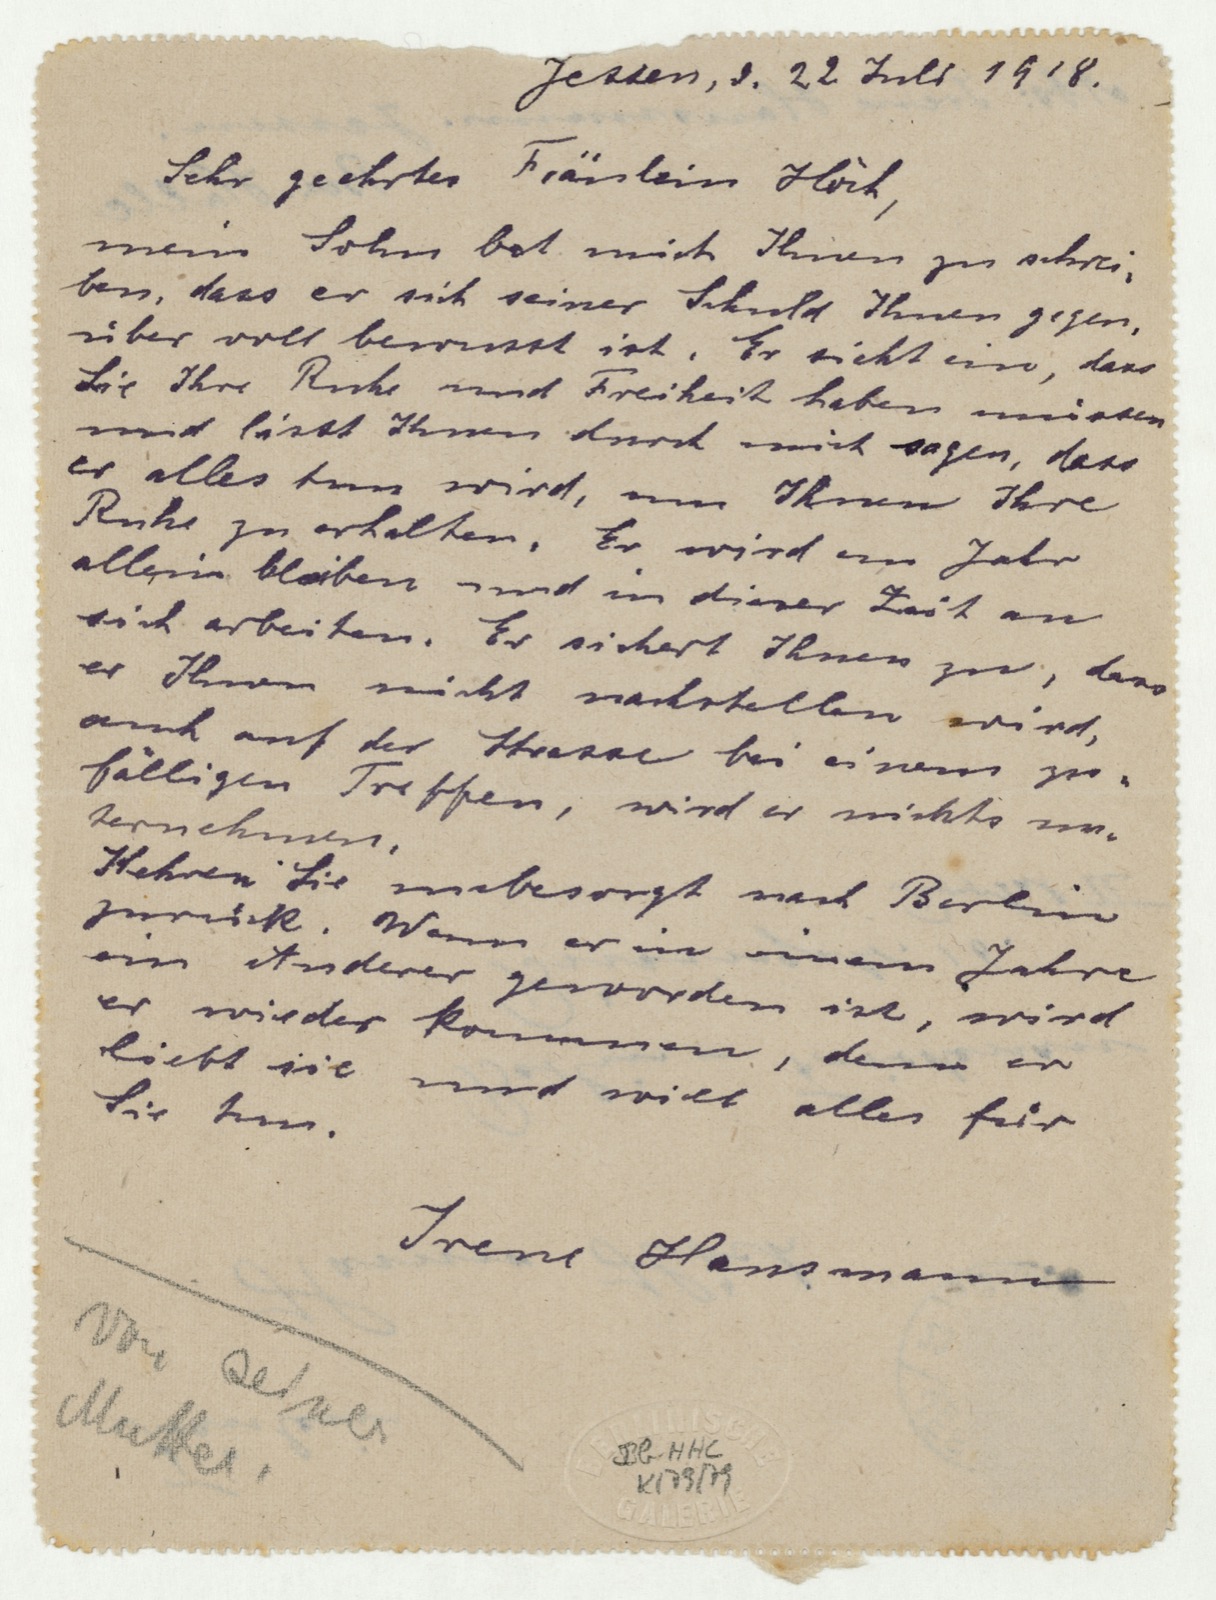 Jessen, d. 22 Juli 1918.
Sehr geehrtes Fräulein Höch,
mein Sohn bat mich Ihnen zu schrei-
ben, dass er sich seiner Schuld Ihnen gegen-
über voll bewusst ist. Er sieht ein, dass
Sie Ihre Ruhe und Freiheit haben müssen
und lässt Ihnen durch mich sagen, dass
er alles tun wird, um Ihnen Ihre
Ruhe zu erhalten. Er wird ein Jahr
allein bleiben und in dieser Zeit an
sich arbeiten. Er sichert Ihnen zu, dass
er Ihnen nicht nachstellen wird,
auch auf der Strasse bei einem zu-
fälligen Treffen, wird er nichts un-
ternehmen.
Kehren Sie unbesorgt nach Berlin
zurück. Wenn er in einem Jahre
ein Anderer geworden ist, wird
er wieder kommen, denn er
liebt sie und will alles für
Sie tun.
Irene Hausmann
von seiner
Mutter.
BERLINISCHE
BG HHC
K/79/79
GALERIE